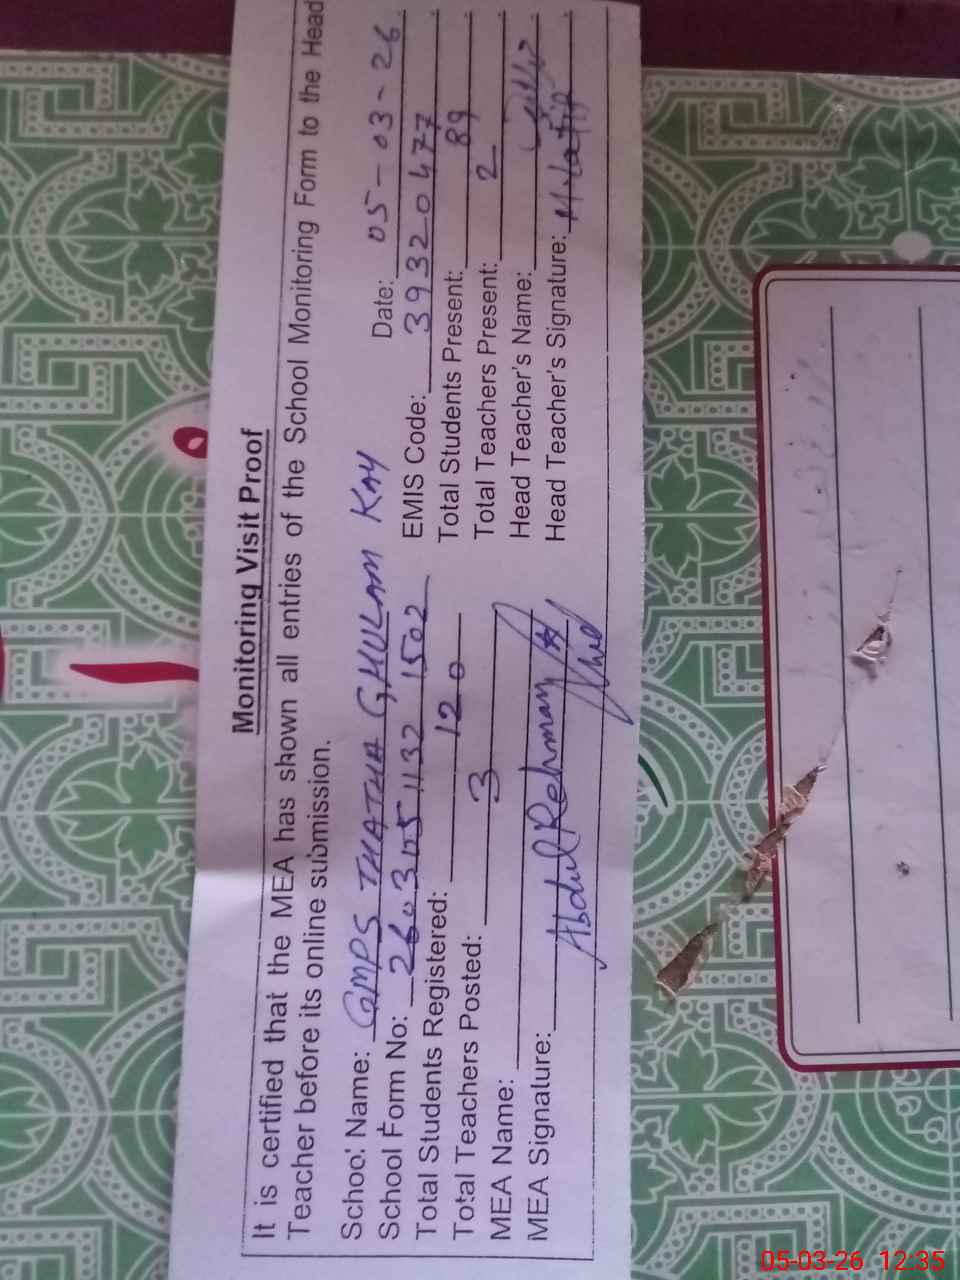 Monitoring Visit Proof
It is certified that the MEA has shown all entries of the School Monitoring Form to the Head
Teacher before its online submission.
School Name: GMPS THATHA GHULAM KAY Date: 05-03-26
School Form No: 2603051132 1502 EMIS Code: 39320477
Total Students Registered: 120 Total Students Present: 89
Total Teachers Posted: 3 Total Teachers Present: 2
MEA Name: Head Teacher's Name:
MEA Signature: Abdul Rehman Head Teacher's Signature: M. Latif
05-03-26 12:35